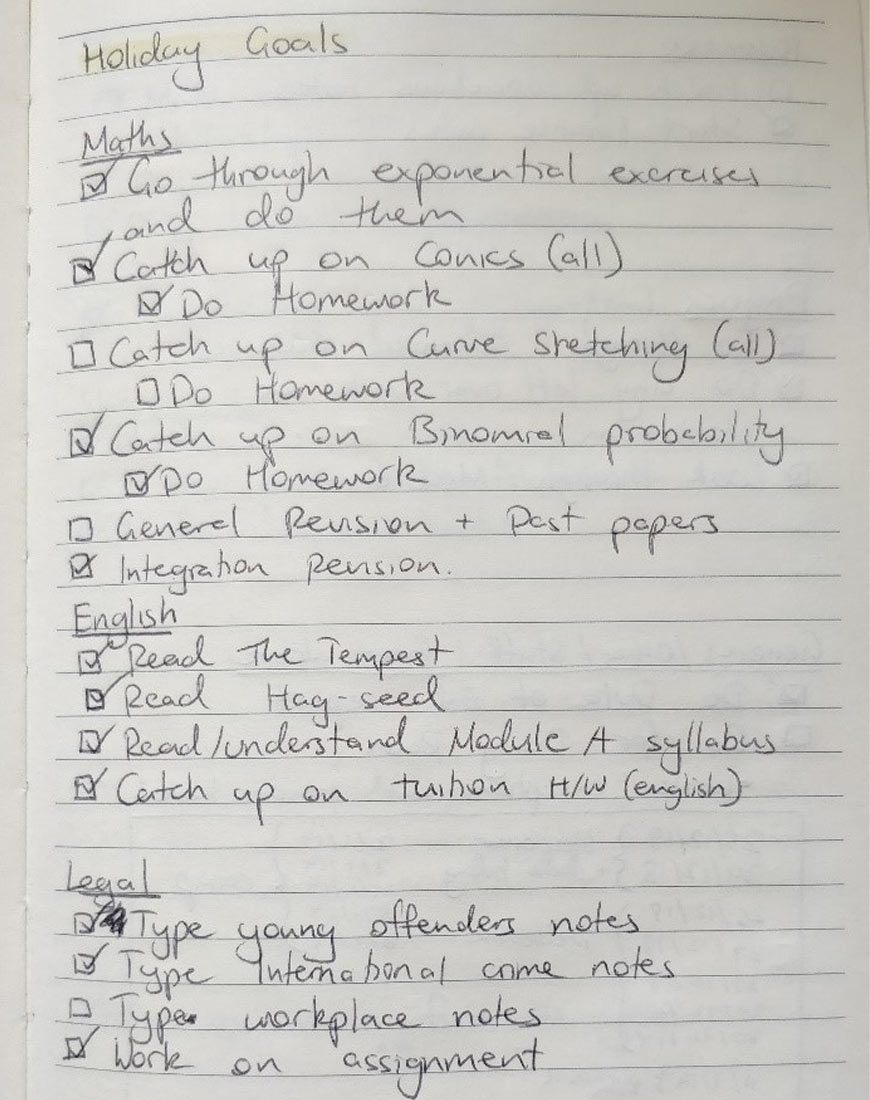 Holiday Goals
Maths
☑ Go through exponential excercises
and do them
☑ Catch up on Conics (all)
☑ Do Homework
☐ Catch up on Curve Sketching (all)
☐ Do Homework
☑ Catch up on Binomial probability
☑ Do Homework
☐ General Revision + Past papers
☑ Integration revision.
English
☑ Read The Tempest
☑ Read Hag-seed
☑ Read/understand Module A syllabus
☑ Catch up on tuition H/W (english)
Legal
☑ Type young offenders notes
☑ Type International crime notes
☐ Type workplace notes
☑ Work on assignment